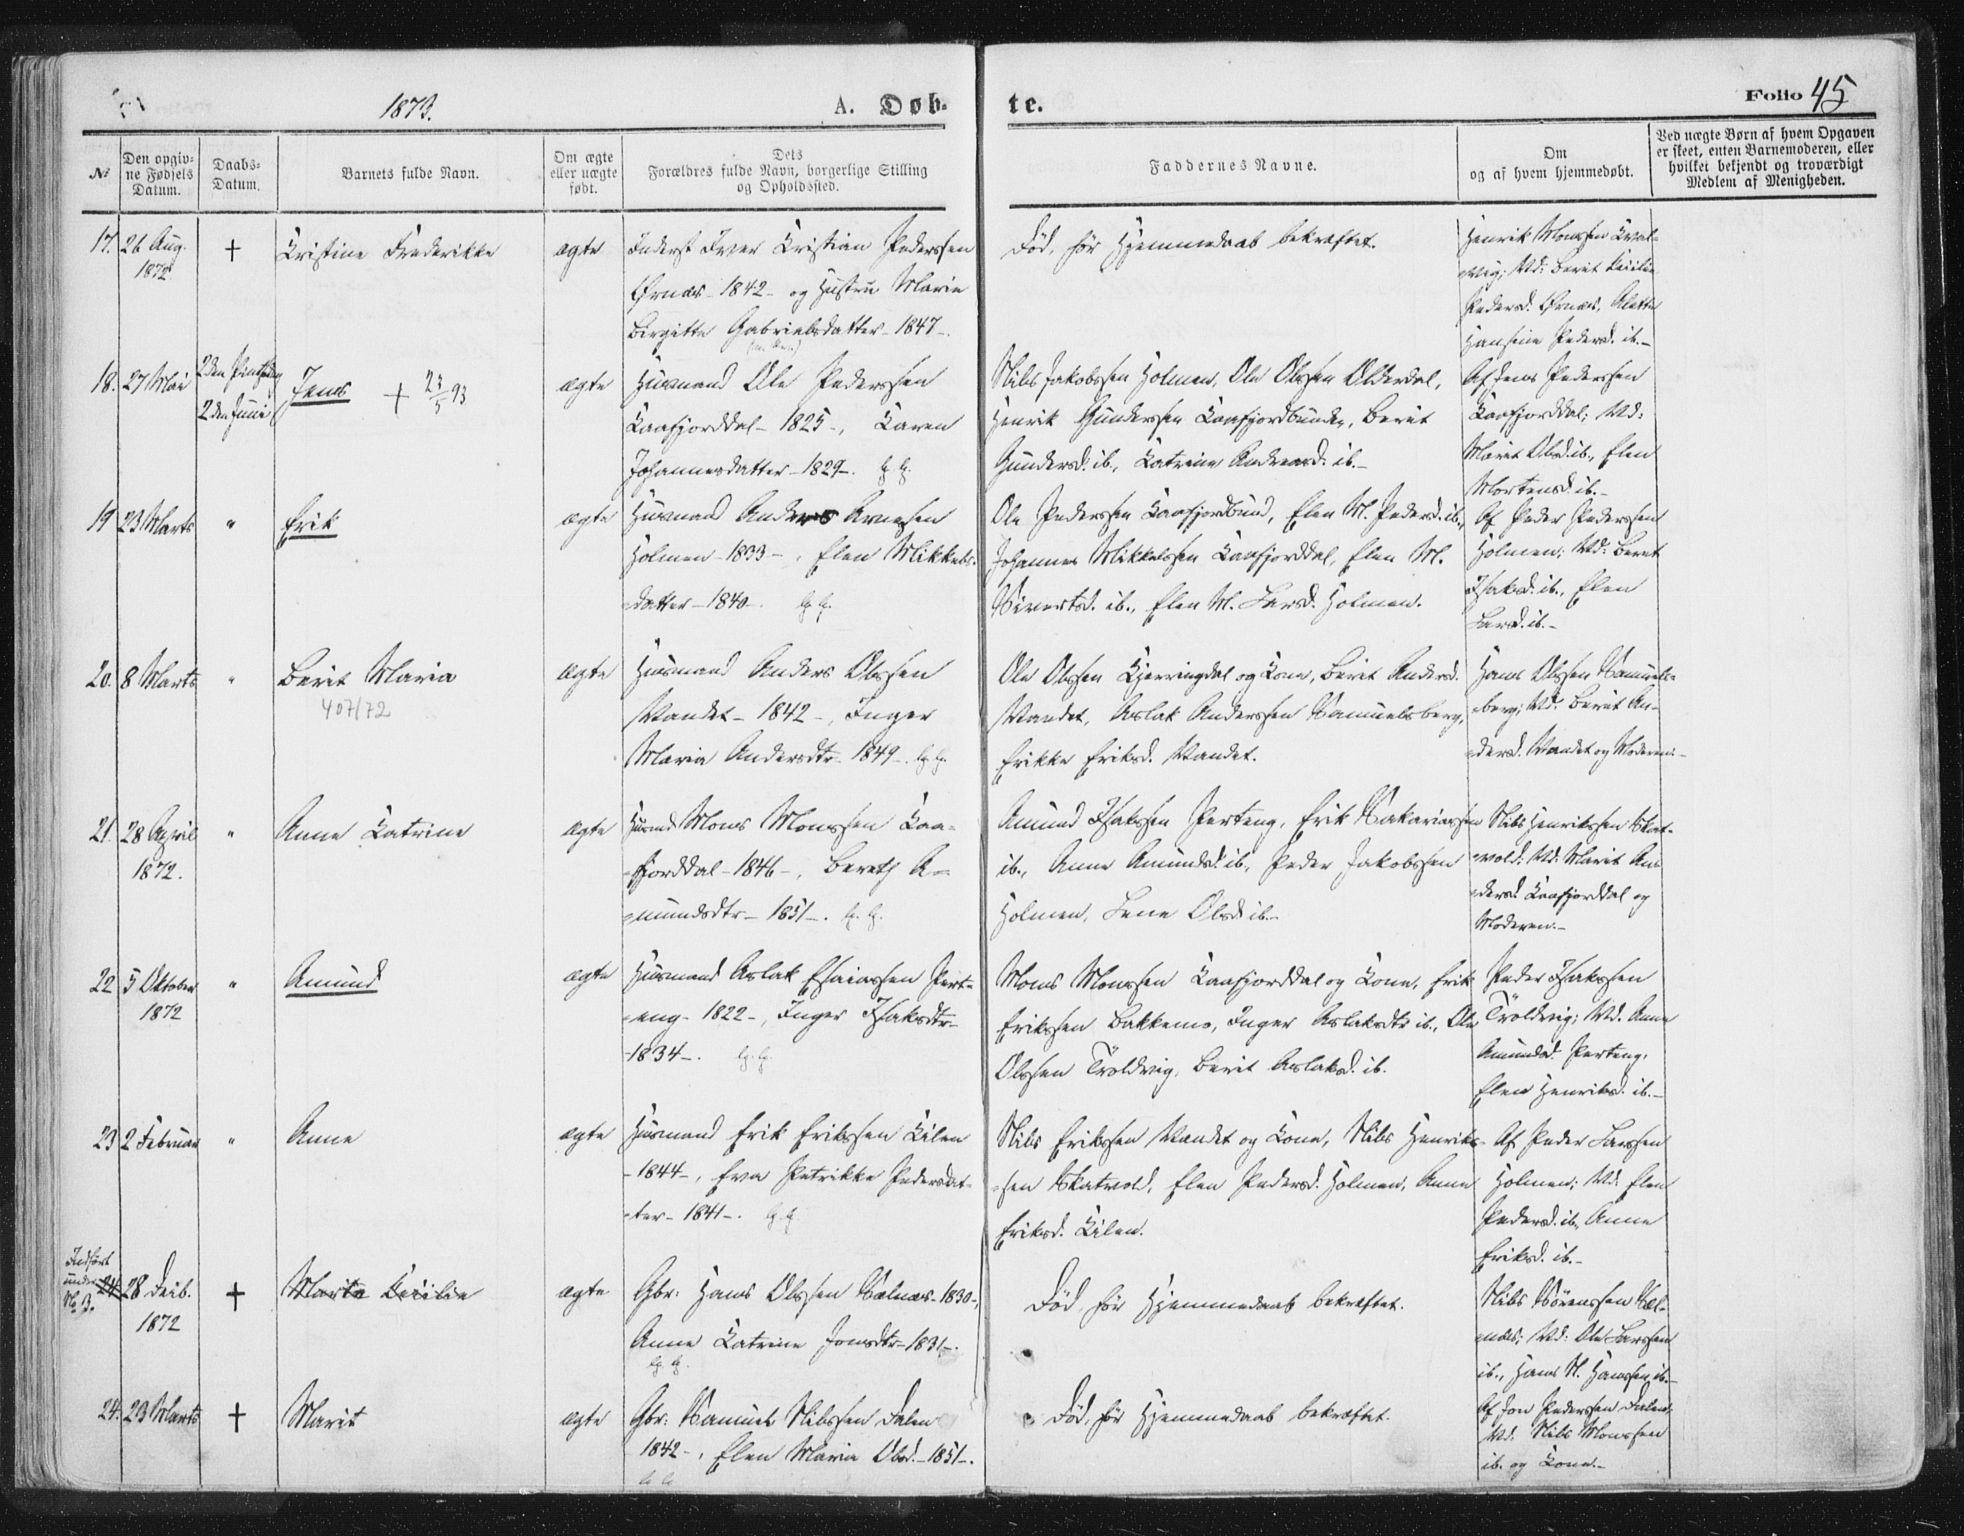 1873.
A. Døb-
te.
Folio 45
№
Den opgiv-
ne Fødsels
Datum.
Daabs-
Datum.
Barnets fulde Navn.
Om ægte
eller uægte
født.
Dets
Forældres fulde Navn, borgerlige Stilling
og Opholdssted.
Faddernes Navne.
Om
og af hvem hjemmedøbt.
Ved uægte Børn af hvem Opgaven
er skeet, enten Barnemoderen, eller
hvilket bekjendt og troværdigt
Medlem af Menigheden.
17. 26 Aug.
1872
†
Kristine Frederikke
ægte
Inderst Iver Kristian Pederssen
Ørnæs - 1842 - og Hustru Marie
Birgitte Gabrielsdatter - 1847 -.
Død, før Hjemmedaab bekræftet.
Henrik Monssen Kval-
vig; Vd: Berit Cecilie
Pedersd. Ørnæs, Aletta
Hansine Pedersd. ib. -
18. 27 Mai
2den Pintsedag
2den Juni
Jens + 23/5 93
ægte
Husmand Ole Pederssen
Kaafjorddal - 1825 -, Karen
Johannesdatter - 1829 -.
Nils Jakobssen Holmen, Ole Olssen Olderdal,
Henrik Gunderssen Kaafjordbunden, Berit
Gundersd. ib., Katrine Andreasd. ib. -
Af Jens Pederssen
Kaafjorddal; Vd:
Marit Olsd. ib., Elen
Mortensd. ib. -
19 23 Marts
"
Erik
ægte
Husmand Anders Arnessen
Holmen - 1833 -, Elen Mikkels-
datter - 1840 -.
Ole Pederssen Kaafjordbund, Elen M. Pedersd. ib.,
Johannes Mikkelssen Kaafjorddal, Elen M.
Sivertsd. ib., Elen M. Larsd. Holmen.
Af Peder Pederssen
Holmen; Vd: Berit
Isaksd. ib., Elen
Larsd. ib. -
20. 8 Marts
"
Berit Maria
407/72
ægte
Husmand Anders Olssen
Vandet - 1842 -, Inger
Maria Andersdtr - 1849 -.
Ole Olssen Kjerringdal og Kone, Berit Andersd.
Vandet, Aslak Anderssen Samuelsberg,
Erikke Eriksd. Vandet.
Hans Olssen Samuels-
berg; Vd. Berit An-
dersd. Vandet og Moderen. -
21. 28 April
1872.
"
Anne Katrine
ægte
Husmd Mons Monssen Kaa-
fjorddal - 1846 -, Bereth A-
mundsdtr - 1851 -.
Amund Isakssen Perteng, Erik Sakariassen
ib., Anne Amundsd. ib., Peder Jakobssen
Holmen, Lene Olsd. ib. -
Nils Henrikssen Skat-
vold; Vd. Marit An-
dersd. Kaafjorddal og
Moderen. -
22 5 Oktober
1872
"
Amund
ægte
Husmand Aslak Esaiassen Pert-
eng - 1822 -, Inger Isaksdtr -
- 1834 -.
Mons Monssen Kaafjorddal og Kone, Erik
Erikssen Bakkemo, Inger Aslaksdtr ib., Ole
Olssen Troldvig, Berit Aslaksd. ib.
Peder Isakssen
Troldvig; Vd. Anne
Amundsd. Perteng,
Elen Henriksd. ib. -
23 2 Februar
"
Anne
ægte
Husmand Erik Erikssen Kilen
- 1844 -, Eva Petrikke Pedersdat-
ter - 1841 -.
Nils Erikssen Vandet og Kone, Nils Henriks-
sen Skatvold, Elen Pedersd. Holmen, Anne
Eriksd. Kilen.
Af Peder Larssen
Holmen; Vd. Elen
Pedersd. ib., Anne
Eriksd. ib. -
Indført
under
24. 28 Decb.
1872
†
Marta Cecilie
ægte
Gbr: Hans Olssen Sølnæs - 1830 -,
Anne Katrine Jonsdtr - 1831 -.
Død, før Hjemmedaab bekræftet.
Nils Sørenssen Sæl-
næs; Vd: Ole Larssen
ib., Hans N. Hanssen ib. -
24. 23 Marts
†
Marit
ægte
Gbr: Samuel Nilssen Dalen
1842 -, Elen Maria Olsd. - 1851 -.
Død, før Hjemmedaab bekræftet.
Af Jon Pederssen Dalen;
Vd. Nils Monssen
ib. og Kone. -